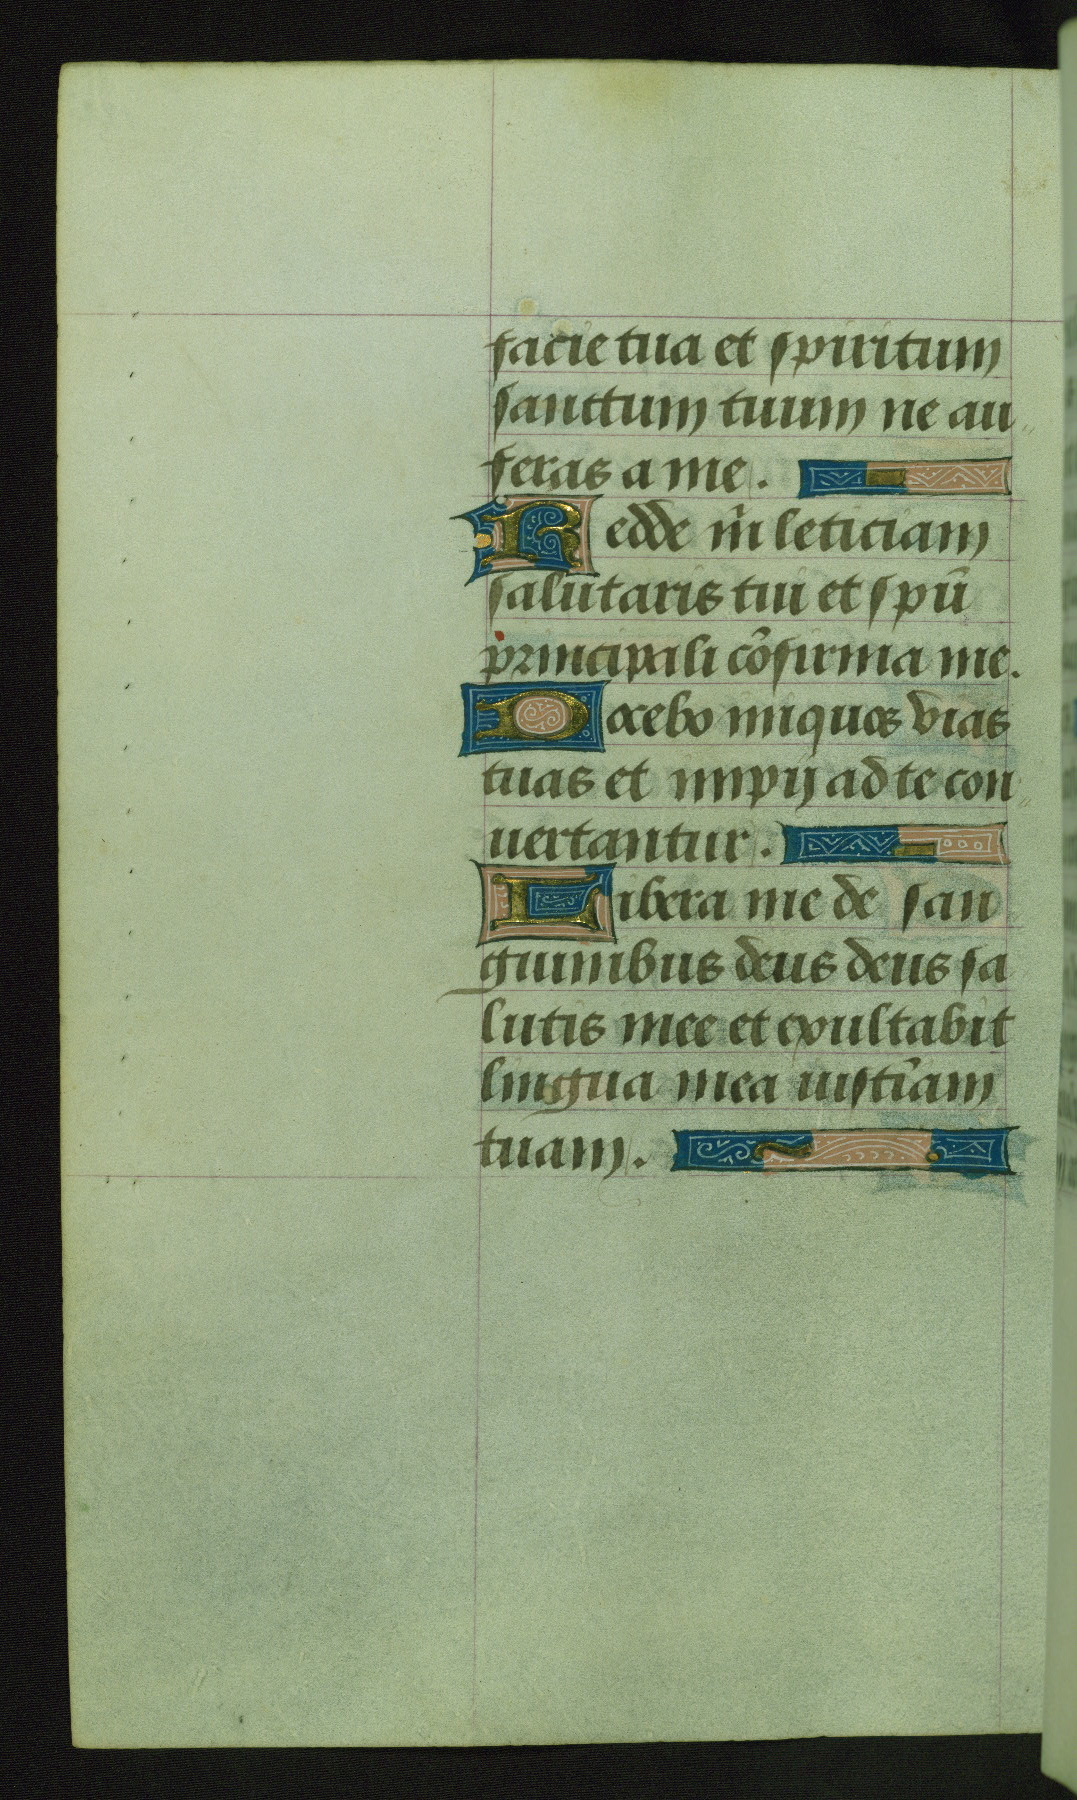 facie tua et spiritum
sanctum tuum ne au
feras a me.
Redde m̄ leticiam
salutaris tui et spū
principali cōfirma me.
Docebo iniquos vias
tuas et impij ad te con
uertantur.
Libera me de san
guinibus deus deus sa
lutis mee et exultabit
lingua mea iustīam
tuam.